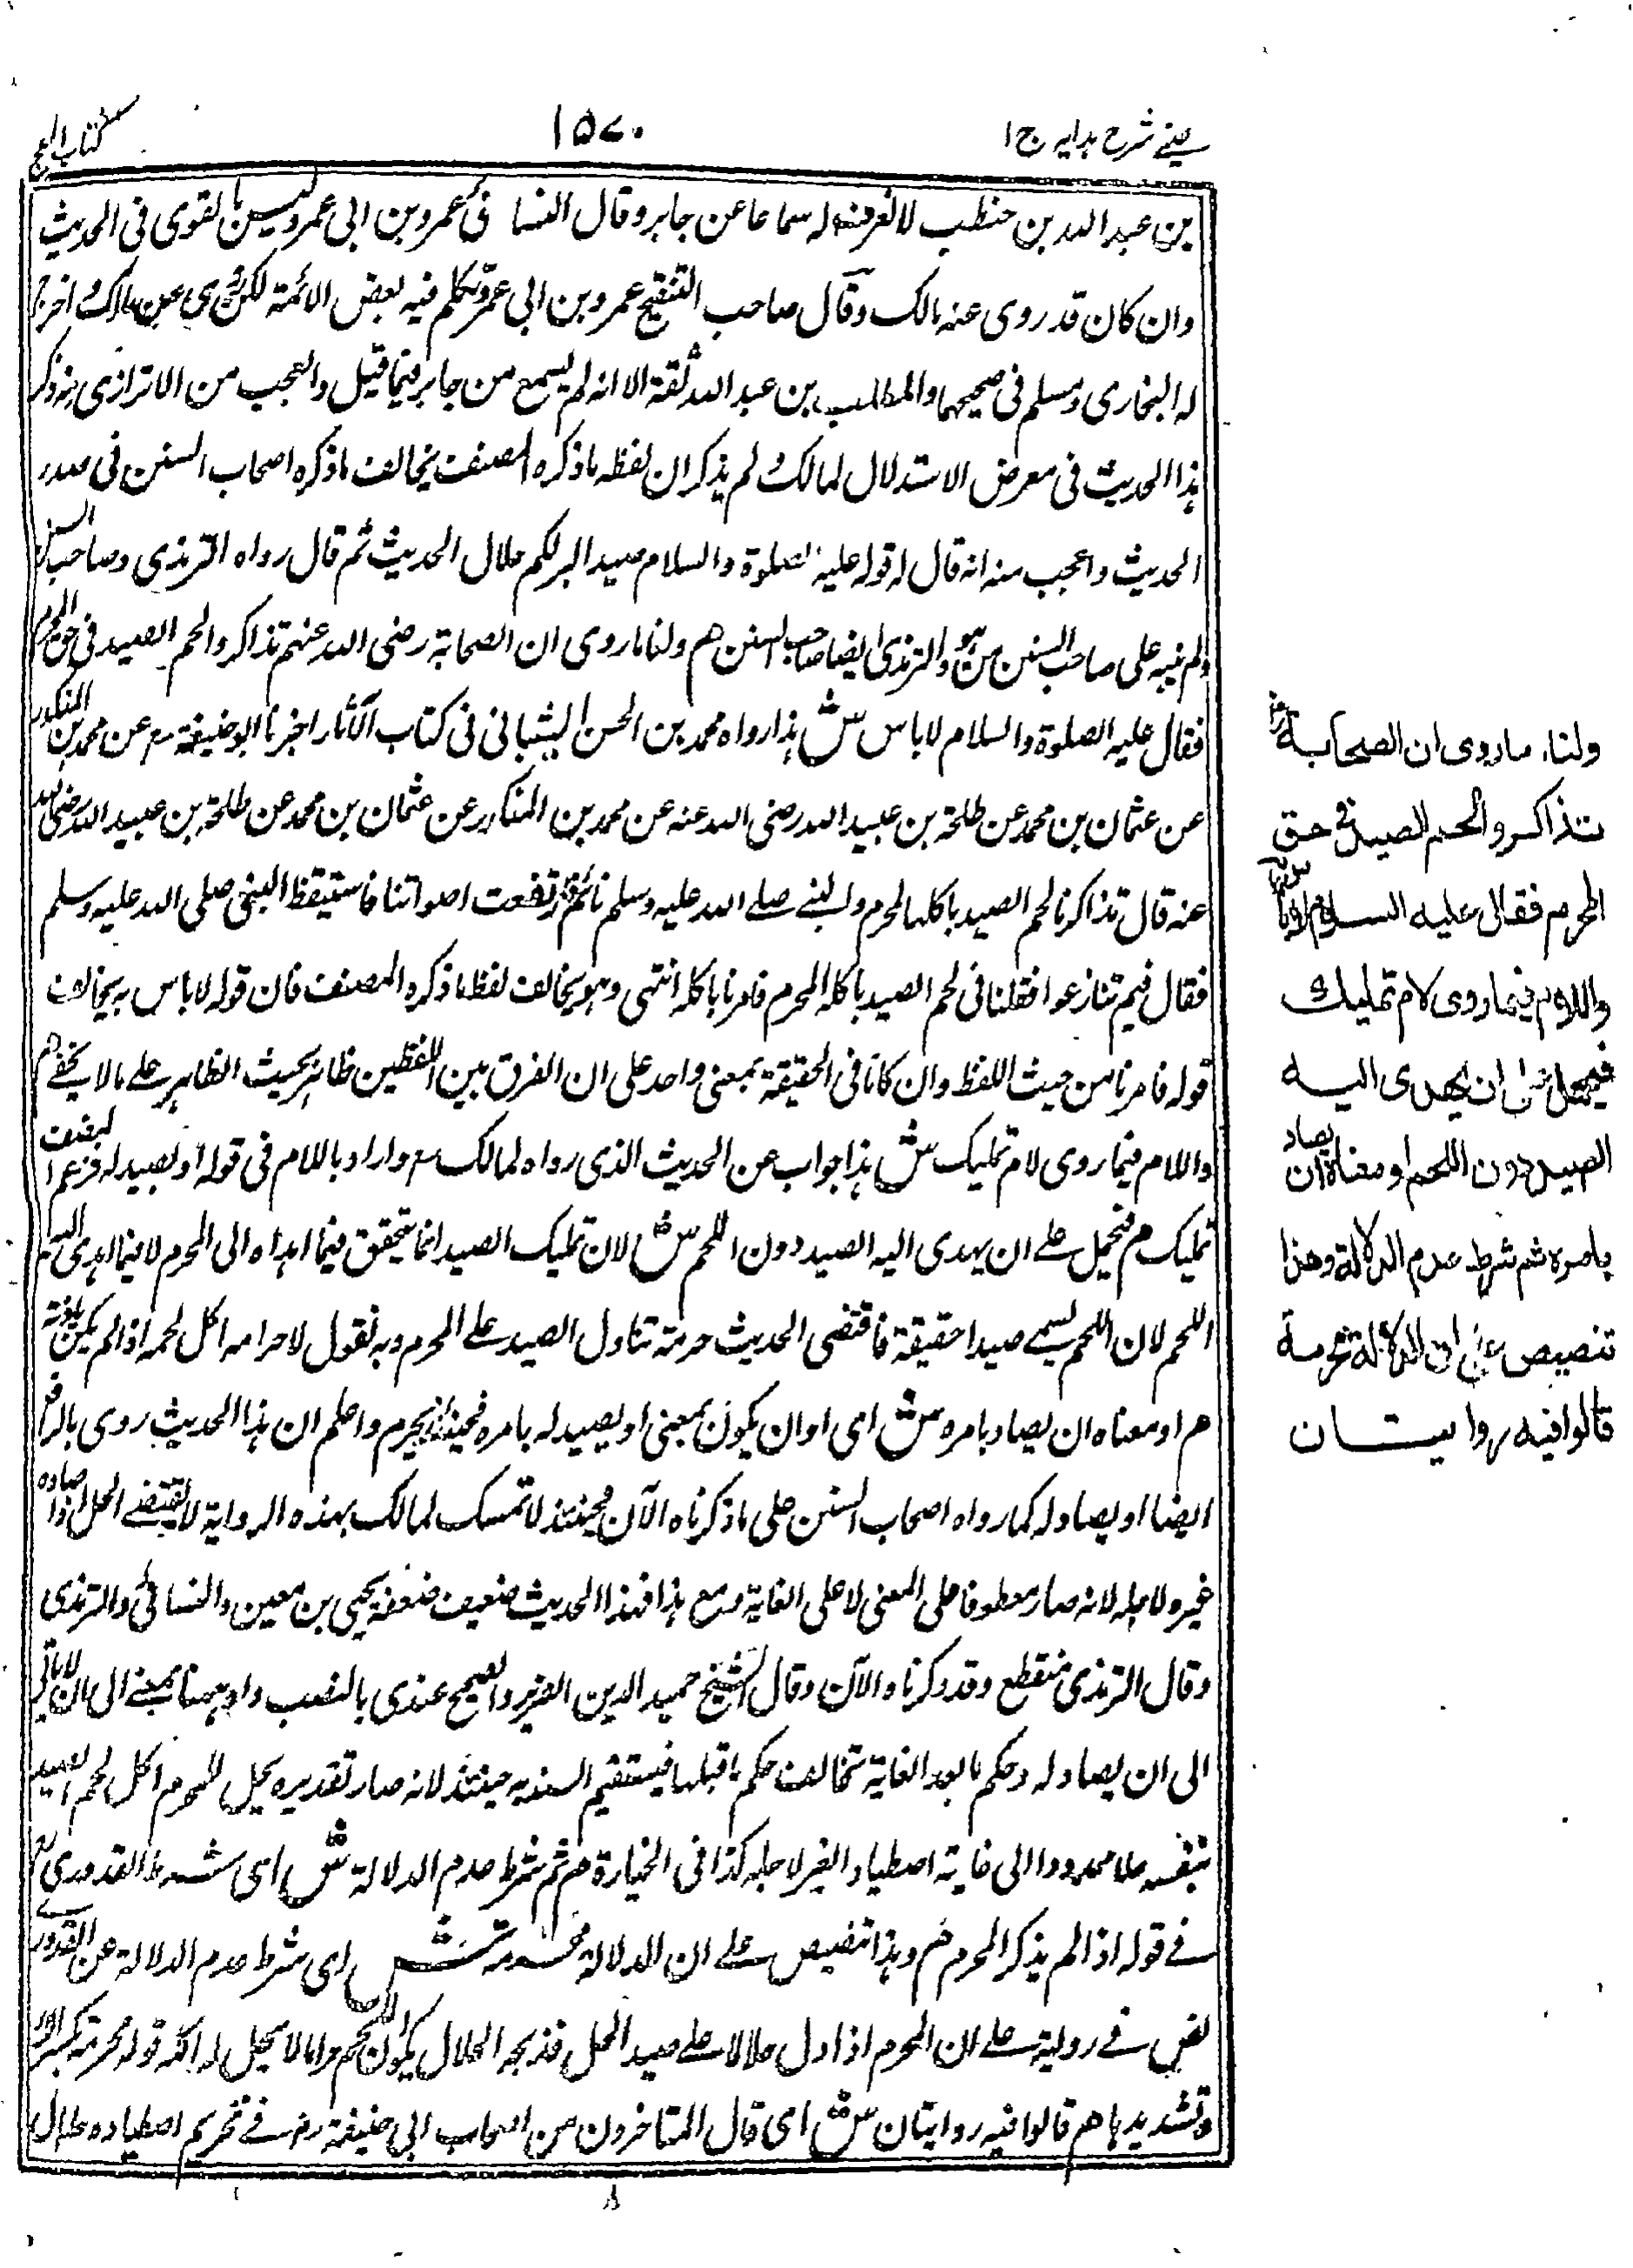 عینے شرح ہدایہ ج ۱
۱۵۷۰
کتاب الحج
بن عبد اللہ بن حنطب لا نعرف لہ سماعا عن جابر وقال النسائی عمرو بن ابی عمرو لیس بالقوی فی الحدیث
وان کان قد روی عنہ مالک وقال صاحب التنقیح عمرو بن ابی عمرو تکلم فیہ بعض الائمۃ لکن روی عن مالک واخرج
لہ البخاری ومسلم فی صحیحہما والمطلب بن عبد اللہ ثقۃ الا انہ لم یسمع من جابر فیما قیل والعجب من الاترازی یذکر
ہذا الحدیث فی معرض الاستدلال لمالک ولم یذکر ان لفظہ ما ذکرہ المصنف یخالف ما ذکرہ اصحاب السنن فی صدر
الحدیث واعجب منہ انہ قال لہ قولہ علیہ الصلوۃ والسلام صید البر لکم حلال الحدیث ثم قال رواہ الترمذی وصاحب السنن
ولم ینبہ علی صاحب السنن من ہو والترمذی ایضا صاحب السنن ھم ولنا ما روی ان الصحابۃ رضی اللہ عنہم تذاکروا لحم الصید فی حق المحرم
فقال علیہ الصلوۃ والسلام لا باس ش ہذا رواہ محمد بن الحسن الشیبانی فی کتاب الآثار اخبرنا ابو حنیفۃ عن محمد بن المنکدر
عن عثمان بن محمد عن طلحۃ بن عبید اللہ رضی اللہ عنہ عن محمد بن المنکدر عن عثمان بن محمد عن طلحۃ بن عبید اللہ رضی اللہ
عنہ قال تذاکرنا لحم الصید یاکلہا المحرم والنبی صلے اللہ علیہ وسلم نائم فارتفعت اصواتنا فاستیقظ النبی صلی اللہ علیہ وسلم
فقال فیم تنازعوا فقلنا فی لحم الصید یاکلہ المحرم فامرنا باکلہ انتہی وہو یخالف لفظ ما ذکرہ المصنف فان قولہ لا باس بہ یخالف
قولہ فامرنا من حیث اللفظ وان کانا فی الحقیقۃ بمعنی واحد علی ان الفرق بین اللفظین ظاہر بحیث الظاہر علے ما لا یخفے ھم
واللام فیما روی لام تملیک ش ہذا جواب عن الحدیث الذی رواہ لمالک واراد باللام فی قولہ او لصید لہ فزعم المصنف
تملیک م فیحمل علے ان یہدی الیہ الصید دون اللحم ش لان تملیک الصید انما یتحقق فیما اہداہ الی المحرم لا فیما اہدی الیہ
اللحم لان اللحم لا یسمے صیدا حقیقۃ فاقتضی الحدیث حرمۃ تناول الصید علے المحرم وبہ نقول لا حرامہ اکل لحمہ اذا لم یکن
ھم او معناہ ان یصاد بامرہ ش ای او ان یکون بمعنی او یصید لہ بامرہ فحینئذ یحرم واعلم ان ہذا الحدیث روی بالرفع
ایضا او یصاد لہ کما رواہ اصحاب السنن علی ما ذکرناہ الآن فحینئذ لا تمسک لمالک بہذہ الروایۃ لا یقتضے الحل اذا صادہ
غیرہ لاجلہ لانہ صار معطوفا علی المعنی لا علی الغایۃ ومع ہذا فہذا الحدیث ضعیف ضعفہ یحیی بن معین والنسائی والترمذی
وقال الترمذی منقطع وقد ذکرناہ الآن وقال الشیخ حمید الدین الضریر والصحیح عندی بالنصب واو ہہنا بمعنے الی ان
الی ان یصاد لہ وحکم ما بعد الغایۃ تخالف حکم ما قبلہا فیستقیم حینئذ لانہ صار تقدیرہ یحل للمحرم اکل لحم الصید
بنفسہ حلا ممدودا الی غایۃ اصطیاد الغیر لاجلہ کذا فی الخبازیۃ ھم ثم شرط عدم الدلالۃ ش ای شرط القدوری
فے قولہ اذا لم یذکر المحرم ھم وہذا تنصیص علے ان الدلالۃ محرمۃ ش ای شرط عدم الدلالۃ عن القدوری
نص فے روایۃ علے ان المحرم اذا دل حلالا علے صید الحل فذبحہ الحلال یکون اللحم حراما لا یحل لہ اکلہ قولہ محرمۃ بکسر الراء
وتشدیدہا ھم قالوا فیہ روایتان ش ای قال المتاخرون من اصحاب ابی حنیفۃ رض فے تحریم اصطیادہ حلال
ولنا ما روی ان الصحابۃ
تذاکروا لحم الصید فی حق
المحرم فقال علیہ السلام لا باس بہ
واللام فیما روی لام تملیک
فیحمل علی ان یھدی الیہ
الصید دون اللحم او معناہ ان یصاد
بامرہ ثم شرط عدم الدلالة وھذا
تنصیص علی ان الدلالة محرمة
قالوا فیہ روایتان